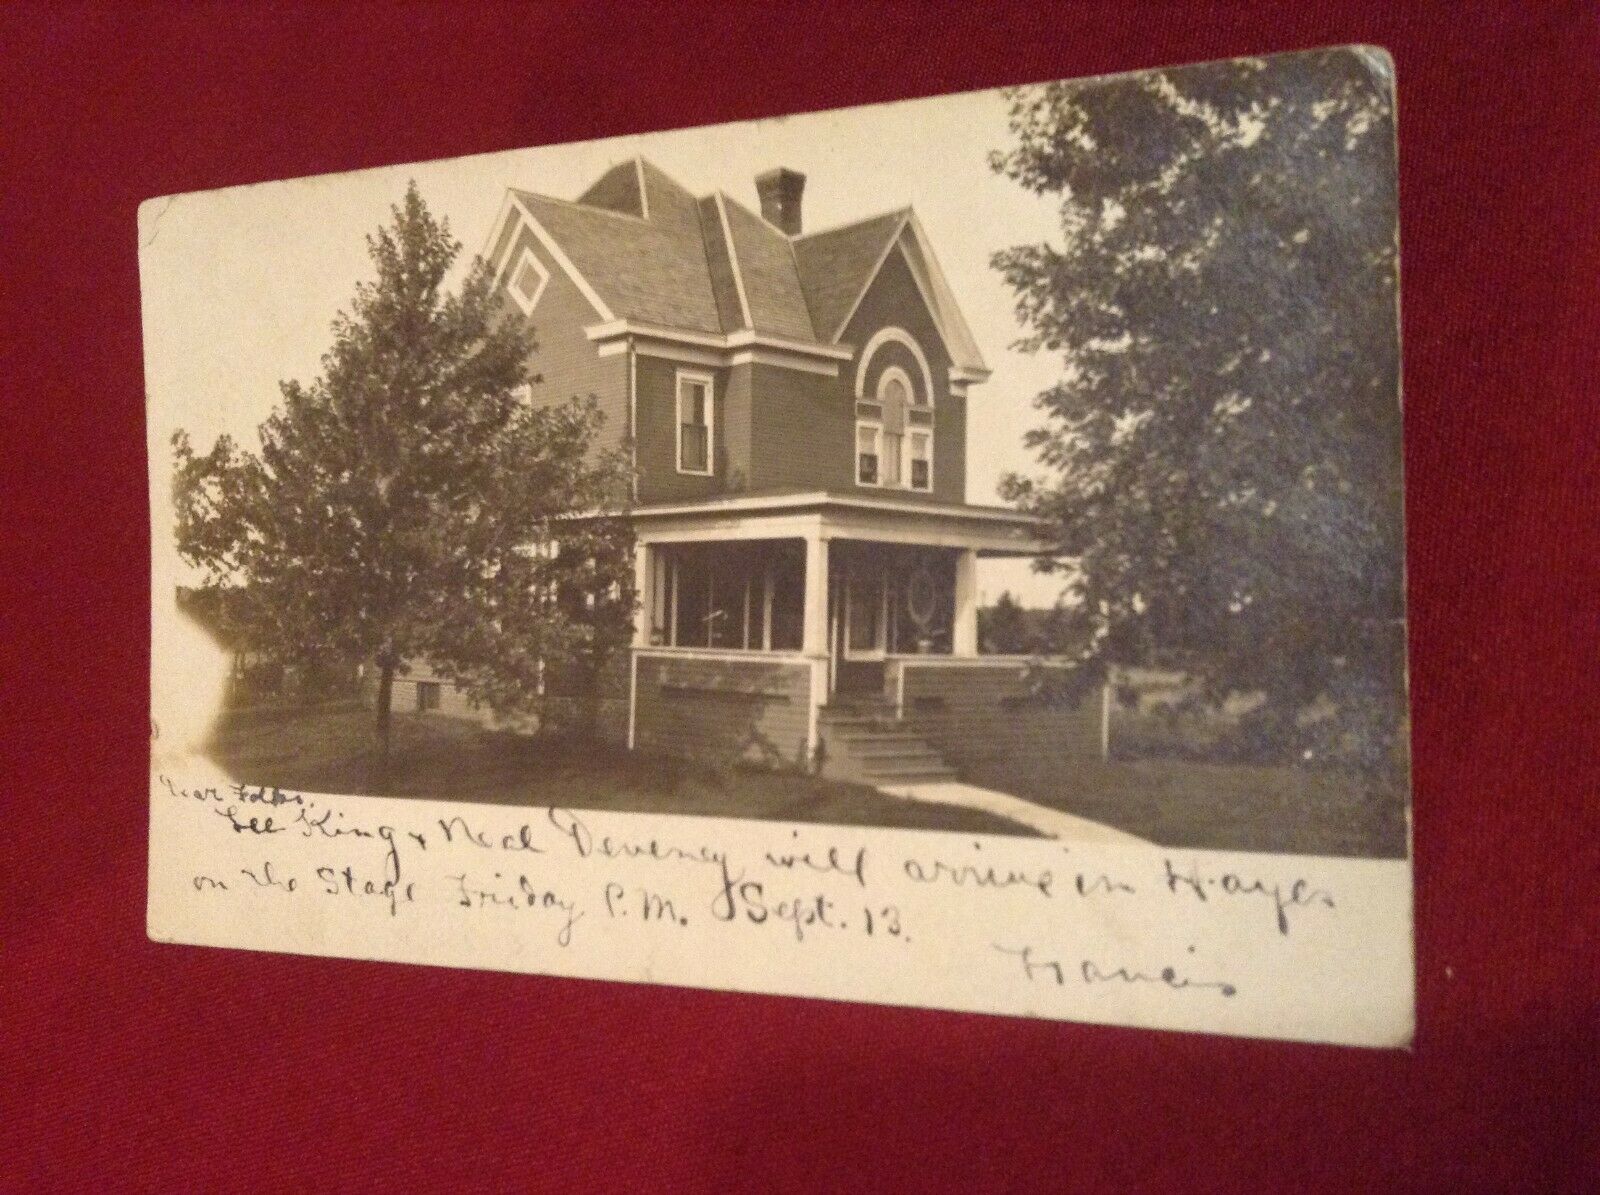 Dear Folks.
Lee King & Neal Deveney will arrive in Hayes
on the Stage Friday P.M. Sept. 13.
Francis